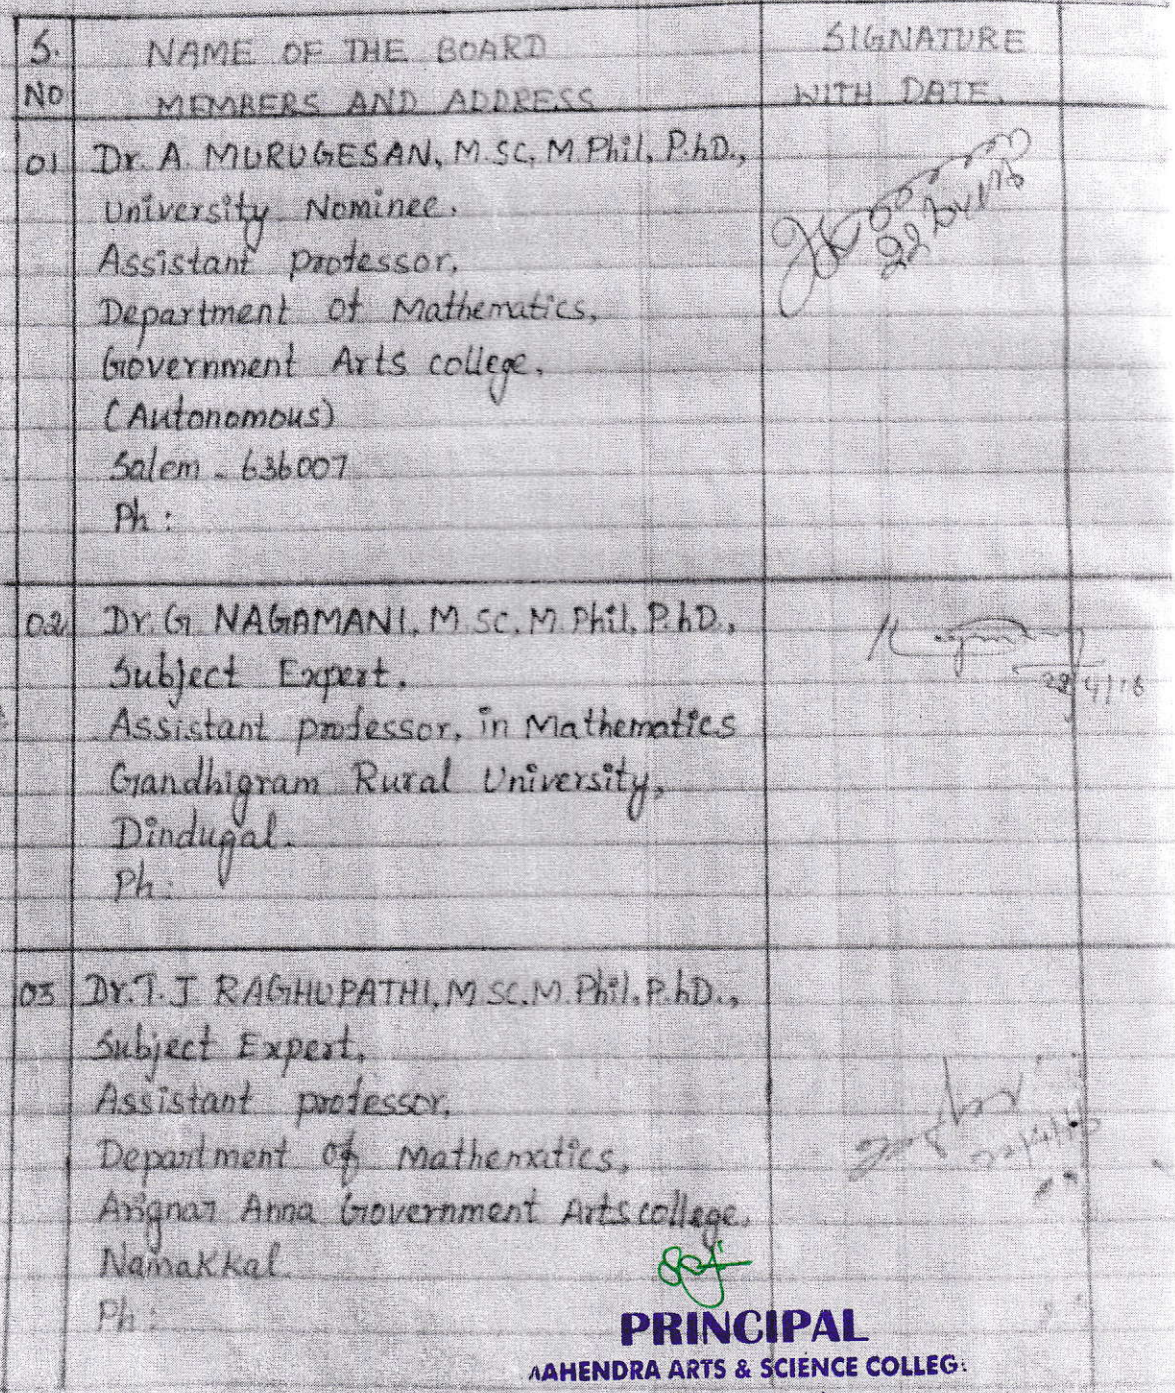 S. NO
NAME OF THE BOARD
MEMBERS AND ADDRESS
SIGNATURE
WITH DATE.
01 Dr. A. MURUGESAN, M.SC, M.Phil, P.hD.,
University Nominee.
Assistant professor,
Department of Mathematics,
Government Arts college.
(Autonomous)
Salem - 636007
Ph :
02 Dr. G. NAGAMANI, M.SC, M.Phil, P.hD.,
Subject Expert.
Assistant professor, in Mathematics
Gandhigram Rural University,
Dindugal.
Ph:
22/4/16
03 Dr. T. J. RAGHUPATHI, M.SC, M.Phil, P.hD.,
Subject Expert,
Assistant professor,
Department of Mathematics,
Arignar Anna Government Arts college,
Namakkal.
Ph :
PRINCIPAL
MAHENDRA ARTS & SCIENCE COLLEGE